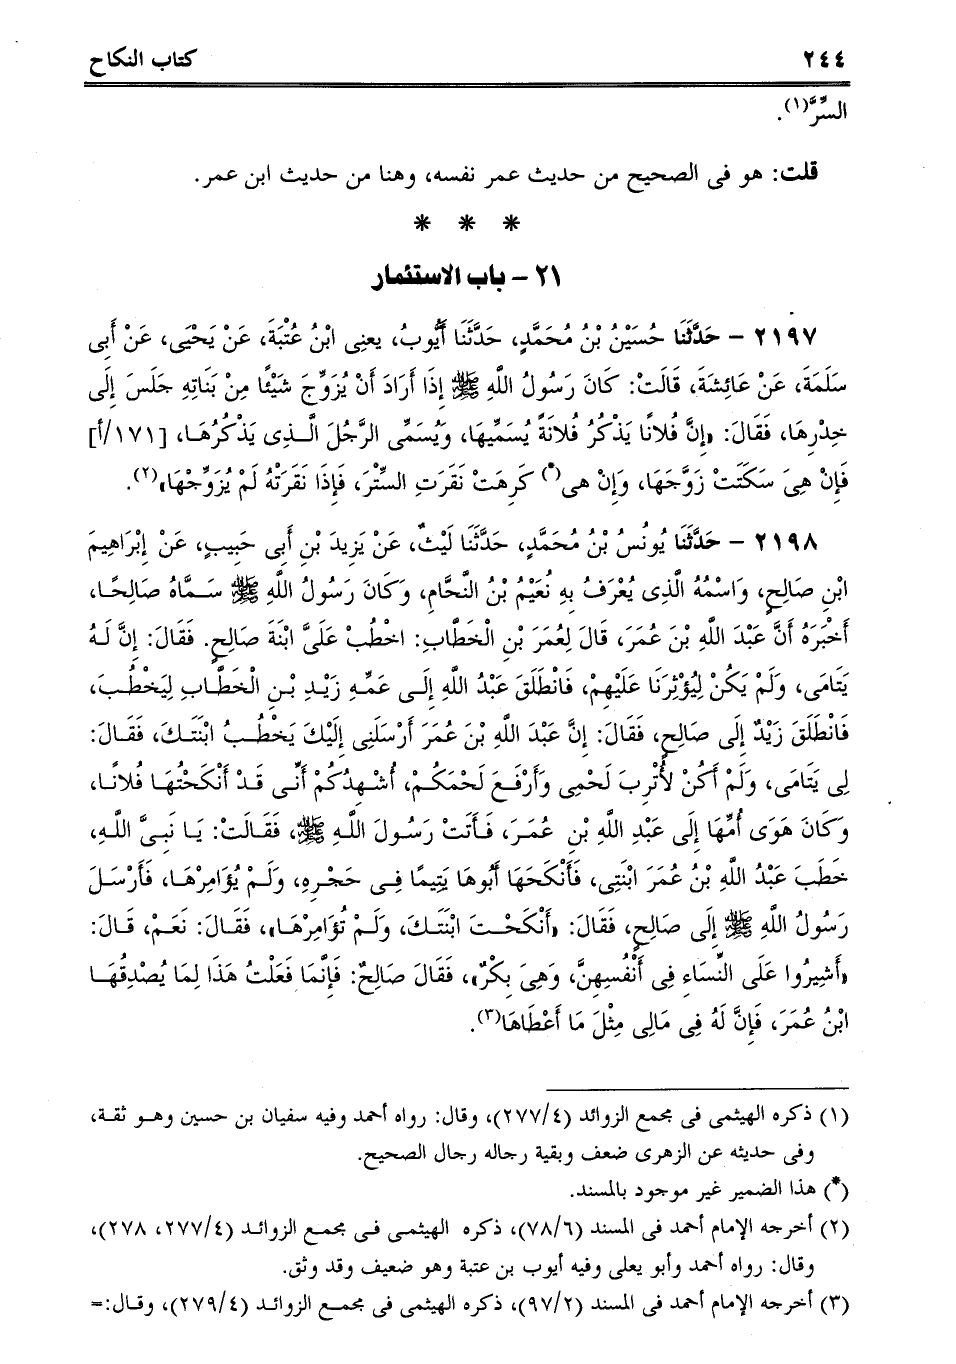 ٢٤٤ كتاب النكاح
السِّرَّ(١).
قلت: هو فى الصحيح من حديث عمر نفسه، وهنا من حديث ابن عمر.
* * *
٢١ - باب الاستئمار
٢١٩٧ - حَدَّثَنَا حُسَيْنُ بْنُ مُحَمَّدٍ، حَدَّثَنَا أَيُّوبُ، يعنِى ابْنُ عُتْبَةَ، عَنْ يَحْيَى، عَنْ أَبِى
سَلَمَةَ، عَنْ عَائِشَةَ، قَالَتْ: كَانَ رَسُولُ اللَّهِ ﷺ إِذَا أَرَادَ أَنْ يُزَوِّجَ شَيْئًا مِنْ بَنَاتِهِ جَلَسَ إِلَى
خِدْرِهَا، فَقَالَ: «إِنَّ فُلانًا يَذْكُرُ فُلانَةً يُسَمِّيهَا، وَيُسَمِّى الرَّجُلَ الَّذِى يَذْكُرُهَا، [١٧١/أ]
فَإِنْ هِىَ سَكَتَتْ زَوَّجَهَا، وَإِنْ هى(*) كَرِهَتْ نَقَرَتِ السِّتْرَ، فَإِذَا نَقَرَتْهُ لَمْ يُزَوِّجْهَا»(٢).
٢١٩٨ - حَدَّثَنَا يُونُسُ بْنُ مُحَمَّدٍ، حَدَّثَنَا لَيْثٌ، عَنْ يَزِيدَ بْنِ أَبِى حَبِيبٍ، عَنْ إِبْرَاهِيمَ
ابْنِ صَالِحٍ، وَاسْمُهُ الَّذِى يُعْرَفُ بِهِ نُعَيْمُ بْنُ النَّحَّامِ، وَكَانَ رَسُولُ اللَّهِ ﷺ سَمَّاهُ صَالِحًا،
أَخْبَرَهُ أَنَّ عَبْدَ اللَّهِ بْنَ عُمَرَ، قَالَ لِعُمَرَ بْنِ الْخَطَّابِ: اخْطُبْ عَلَىَّ ابْنَةَ صَالِحٍ. فَقَالَ: إِنَّ لَهُ
يَتَامَى، وَلَمْ يَكُنْ لِيُؤْثِرَنَا عَلَيْهِمْ، فَانْطَلَقَ عَبْدُ اللَّهِ إِلَى عَمِّهِ زَيْدِ بْنِ الْخَطَّابِ لِيَخْطُبَ،
فَانْطَلَقَ زَيْدٌ إِلَى صَالِحٍ، فَقَالَ: إِنَّ عَبْدَ اللَّهِ بْنَ عُمَرَ أَرْسَلَنِى إِلَيْكَ يَخْطُبُ ابْنَتَكَ، فَقَالَ:
لِى يَتَامَى، وَلَمْ أَكُنْ لأُتْرِبَ لَحْمِى وَأَرْفَعَ لَحْمَكُمْ، أُشْهِدُكُمْ أَنِّى قَدْ أَنْكَحْتُهَا فُلانًا،
وَكَانَ هَوَى أُمِّهَا إِلَى عَبْدِ اللَّهِ بْنِ عُمَرَ، فَأَتَتْ رَسُولَ اللَّهِ ﷺ، فَقَالَتْ: يَا نَبِىَّ اللَّهِ،
خَطَبَ عَبْدُ اللَّهِ بْنُ عُمَرَ ابْنَتِى، فَأَنْكَحَهَا أَبُوهَا يَتِيمًا فِى حَجْرِهِ، وَلَمْ يُؤَامِرْهَا، فَأَرْسَلَ
رَسُولُ اللَّهِ ﷺ إِلَى صَالِحٍ، فَقَالَ: «أَنْكَحْتَ ابْنَتَكَ، وَلَمْ تُؤَامِرْهَا»، فَقَالَ: نَعَمْ، قَالَ:
«أَشِيرُوا عَلَى النِّسَاءِ فِى أَنْفُسِهِنَّ، وَهِىَ بِكْرٌ»، فَقَالَ صَالِحٌ: فَإِنَّمَا فَعَلْتُ هَذَا لِمَا يُصْدِقُهَا
ابْنُ عُمَرَ، فَإِنَّ لَهُ فِى مَالِى مِثْلَ مَا أَعْطَاهَا(٣).
(١) ذكره الهيثمى فى مجمع الزوائد (٢٧٧/٤)، وقال: رواه أحمد وفيه سفيان بن حسين وهو ثقة،
وفى حديثه عن الزهرى ضعف وبقية رجاله رجال الصحيح.
(*) هذا الضمير غير موجود بالمسند.
(٢) أخرجه الإمام أحمد فى المسند (٧٨/٦)، ذكره الهيثمى فى مجمع الزوائد (٢٧٧/٤، ٢٧٨)،
وقال: رواه أحمد وأبو يعلى وفيه أيوب بن عتبة وهو ضعيف وقد وثق.
(٣) أخرجه الإمام أحمد فى المسند (٩٧/٢)، ذكره الهيثمى فى مجمع الزوائد (٢٧٩/٤)، وقال:=